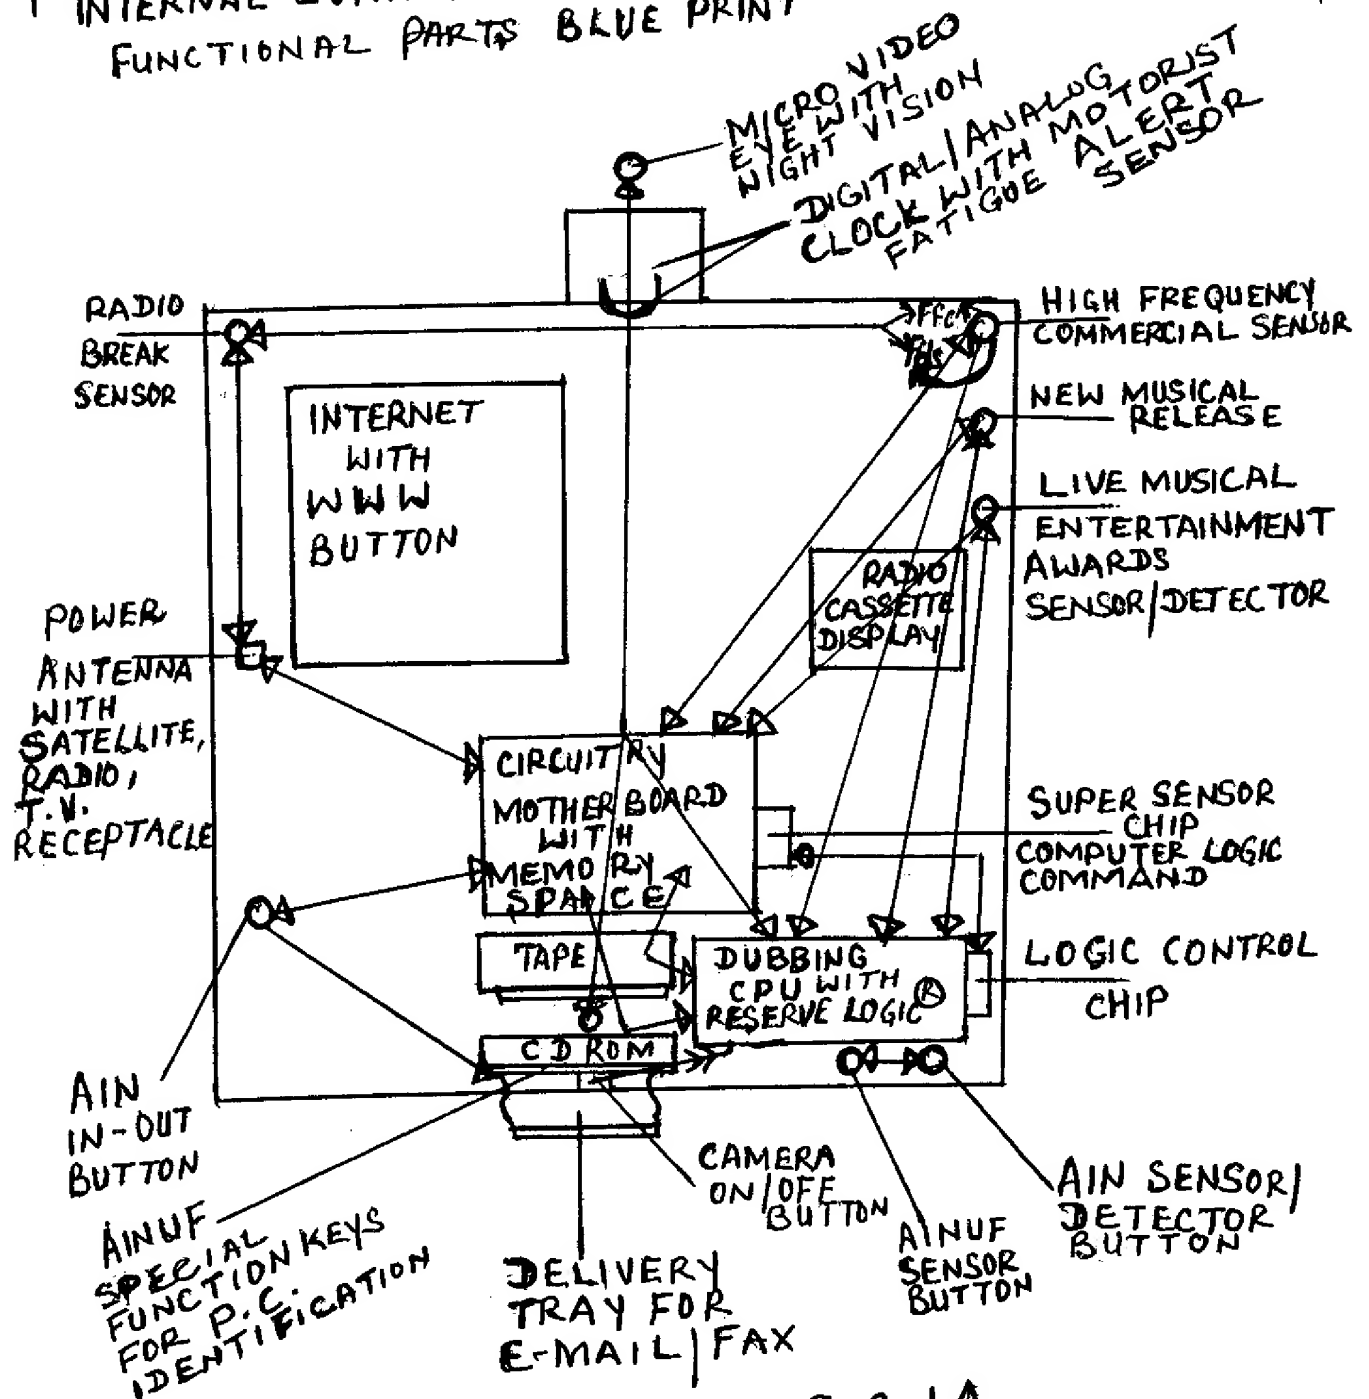 INTERNAL
FUNCTIONAL PARTS BLUE PRINT
MICRO VIDEO
EYE WITH
NIGHT VISION
DIGITAL/ANALOG
CLOCK WITH MOTORIST
FATIGUE ALERT
SENSOR
RADIO
BREAK
SENSOR
HIGH FREQUENCY
COMMERCIAL SENSOR
NEW MUSICAL
RELEASE
LIVE MUSICAL
ENTERTAINMENT
AWARDS
SENSOR/DETECTOR
INTERNET
WITH
WWW
BUTTON
RADIO
CASSETTE
DISPLAY
POWER
ANTENNA
WITH
SATELLITE,
RADIO,
T.V.
RECEPTACLE
CIRCUITRY
MOTHERBOARD
WITH
MEMORY
SPACE
SUPER SENSOR
CHIP
COMPUTER LOGIC
COMMAND
TAPE
DUBBING
CPU WITH
RESERVE LOGIC ®
LOGIC CONTROL
CHIP
CD ROM
AIN
IN-OUT
BUTTON
AINUF
SPECIAL
FUNCTION KEYS
FOR P.C.
IDENTIFICATION
CAMERA
ON/OFF
BUTTON
DELIVERY
TRAY FOR
E-MAIL/FAX
AINUF
SENSOR
BUTTON
AIN SENSOR/
DETECTOR
BUTTON